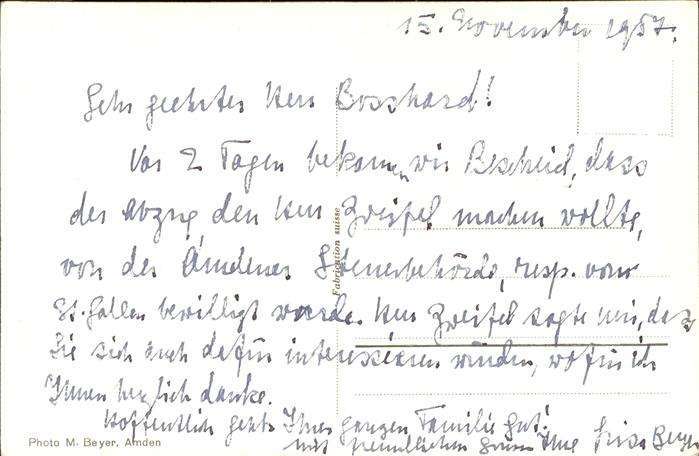 15. November 1957.
Sehr geehrter Herr Bosshard!
Vor 2 Tagen bekamen wir Bescheid, dass
der Abzug den Herr Zweifel machen wollte,
von der Ämdener Steuerbehörde, resp. vom
St. Gallen bewilligt wurde. Herr Zweifel sagte mir, dass
Sie sich auch dafür interessieren würden, wofür ich
Ihnen herzlich danke.
Hoffentlich geht's Ihrer ganzen Familie gut!
mit freundlichen Ihre
Fabrication suisse
Photo M. Beyer, Amden